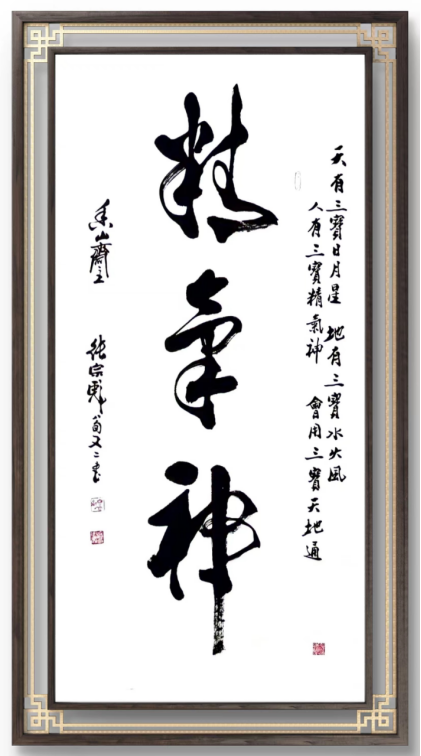 天有三寶日月星 地有三寶水火風
人有三寶精氣神 會用三寶天地通
精氣神
山齋主